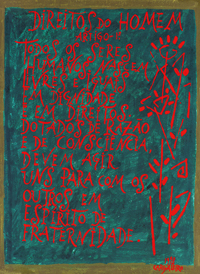 DIREITOS DO HOMEM
ARTIGO 1º
TODOS OS SERES
HUMANOS NASCEM
LIVRES E IGUAIS
EM DIGNIDADE
E EM DIREITOS
DOTADOS DE RAZÃO
E DE CONSCIÊNCIA,
DEVEM AGIR
UNS PARA COM OS
OUTROS EM
ESPÍRITO DE
FRATERNIDADE.